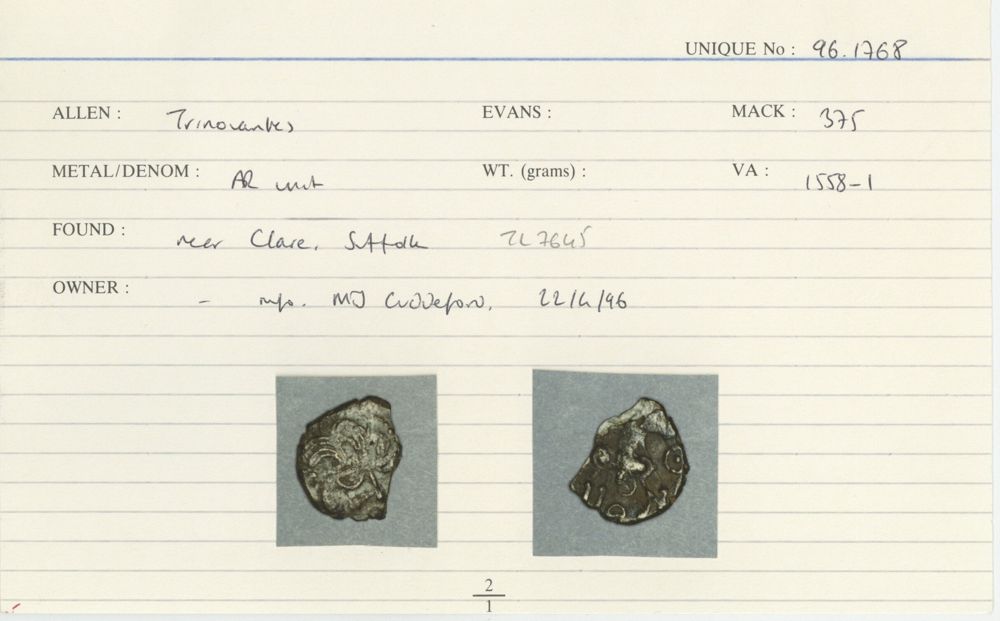 UNIQUE No : 96.1768
ALLEN : Trinovantes EVANS : MACK : 375
METAL/DENOM : AR unit WT. (grams) : VA : 1558-1
FOUND : near Clare, Suffolk TL7645
OWNER : - info. MJ Cuddeford, 22/4/96
2
1